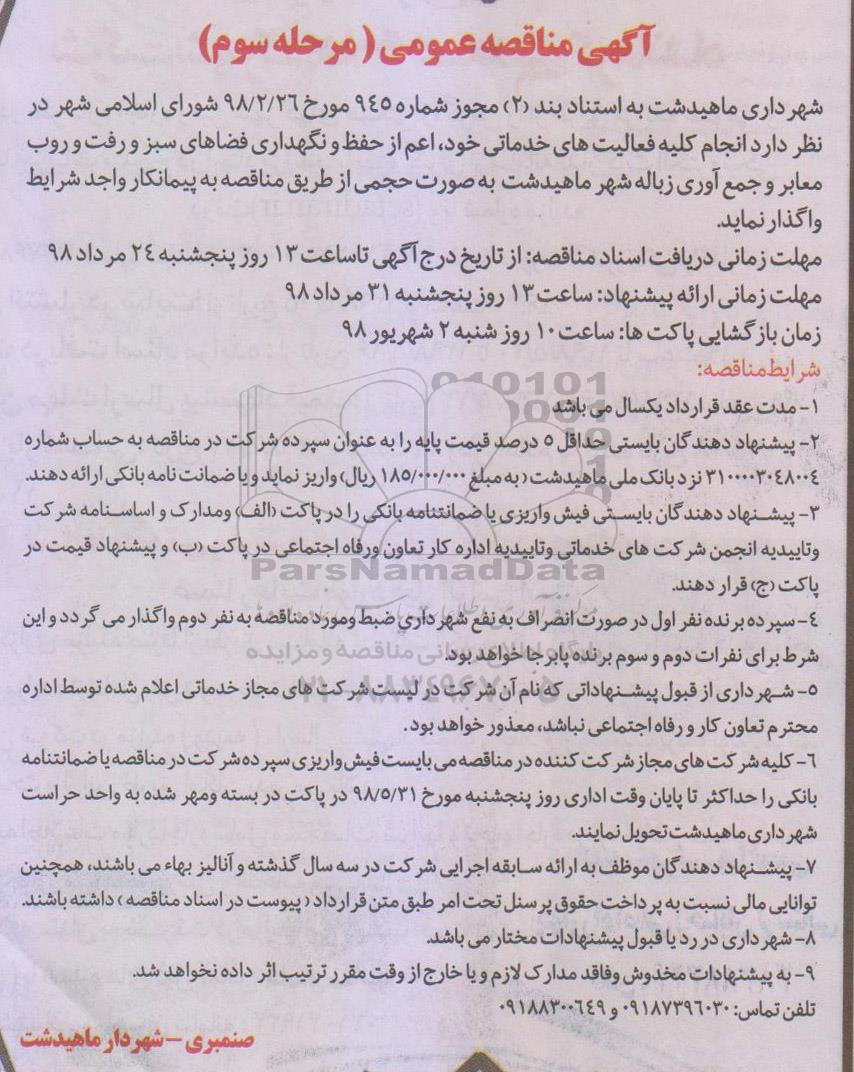 آگهی مناقصه عمومی ( مرحله سوم)
شهرداری ماهیدشت به استناد بند (۲) مجوز شماره ۹۴۵ مورخ ۹۸/۲/۲۶ شورای اسلامی شهر در
نظر دارد انجام کلیه فعالیت های خدماتی خود، اعم از حفظ و نگهداری فضاهای سبز و رفت و روب
معابر و جمع آوری زباله شهر ماهیدشت به صورت حجمی از طریق مناقصه به پیمانکار واجد شرایط
واگذار نماید.
مهلت زمانی دریافت اسناد مناقصه: از تاریخ درج آگهی تاساعت ۱۳ روز پنجشنبه ۲۴ مرداد ۹۸
مهلت زمانی ارائه پیشنهاد: ساعت ۱۳ روز پنجشنبه ۳۱ مرداد ۹۸
زمان بازگشایی پاکت ها: ساعت ۱۰ روز شنبه ۲ شهریور ۹۸
شرایط مناقصه:
۱- مدت عقد قرارداد یکسال می باشد
۲- پیشنهاد دهندگان بایستی حداقل ۵ درصد قیمت پایه را به عنوان سپرده شرکت در مناقصه به حساب شماره
۳۱۰۰۰۰۳۰۴۸۰۰۴ نزد بانک ملی ماهیدشت ( به مبلغ ۱۸۵/۰۰۰/۰۰۰ ریال) واریز نماید و یا ضمانت نامه بانکی ارائه دهند.
۳- پیشنهاد دهندگان بایستی فیش واریزی یا ضمانتنامه بانکی را در پاکت (الف) ومدارک و اساسنامه شرکت
وتاییدیه انجمن شرکت های خدماتی وتاییدیه اداره کار تعاون ورفاه اجتماعی در پاکت (ب) و پیشنهاد قیمت در
پاکت (ج) قرار دهند.
۴- سپرده برنده نفر اول در صورت انصراف به نفع شهرداری ضبط ومورد مناقصه به نفر دوم واگذار می گردد و این
شرط برای نفرات دوم و سوم برنده پابرجا خواهد بود.
۵- شهرداری از قبول پیشنهاداتی که نام آن شرکت در لیست شرکت های مجاز خدماتی اعلام شده توسط اداره
محترم تعاون کار و رفاه اجتماعی نباشد، معذور خواهد بود.
۶- کلیه شرکت های مجاز شرکت کننده در مناقصه می بایست فیش واریزی سپرده شرکت در مناقصه یا ضمانتنامه
بانکی را حداکثر تا پایان وقت اداری روز پنجشنبه مورخ ۹۸/۵/۳۱ در پاکت در بسته ومهر شده به واحد حراست
شهرداری ماهیدشت تحویل نمایند.
۷- پیشنهاد دهندگان موظف به ارائه سابقه اجرایی شرکت در سه سال گذشته و آنالیز بهاء می باشند، همچنین
توانایی مالی نسبت به پرداخت حقوق پرسنل تحت امر طبق متن قرارداد ( پیوست در اسناد مناقصه ) داشته باشند.
۸- شهرداری در رد یا قبول پیشنهادات مختار می باشد.
۹- به پیشنهادات مخدوش وفاقد مدارک لازم و یا خارج از وقت مقرر ترتیب اثر داده نخواهد شد.
تلفن تماس: ۰۹۱۸۷۳۹۶۰۳۰ و ۰۹۱۸۸۳۰۰۶۴۹
صنمبری – شهردار ماهیدشت
ParsNamadData